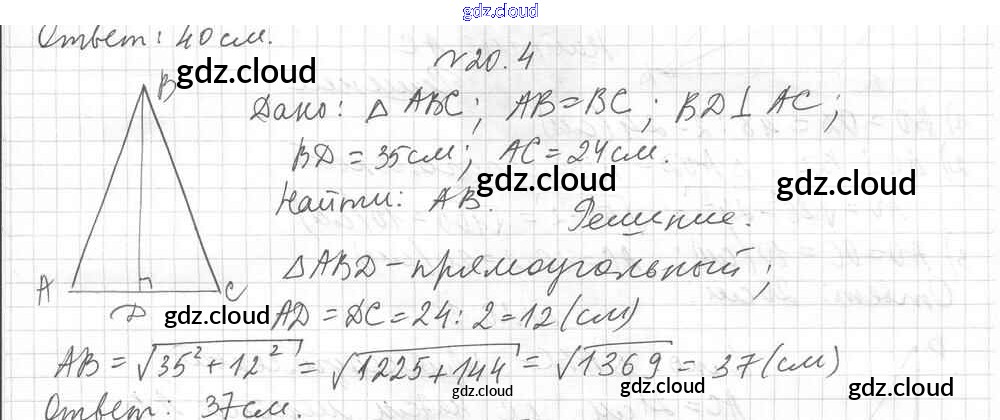 gdz.cloud
Ответ: 40 см.
№20.4
gdz.cloud
B
Дано: △ ABC; AB=BC; BD⊥AC;
gdz.cloud
BD=35см; AC=24см.
gdz.cloud
gdz.cloud
Найти: AB.
Решение.
△ABD-прямоугольный;
A
D
C
gdz.cloud
AD=DC=24:2=12(см)
AB=√35²+12²=√1225+144=√1369=37(см)
gdz.cloud
gdz.cloud
gdz.cloud
Ответ: 37см.